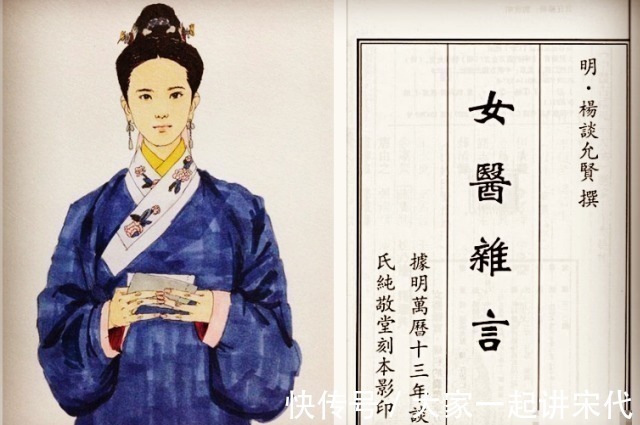 明·楊談允賢 撰
女醫雜言
據明萬曆十三年談
氏純敬堂刻本影印
快传号 / 大家一起讲宋代